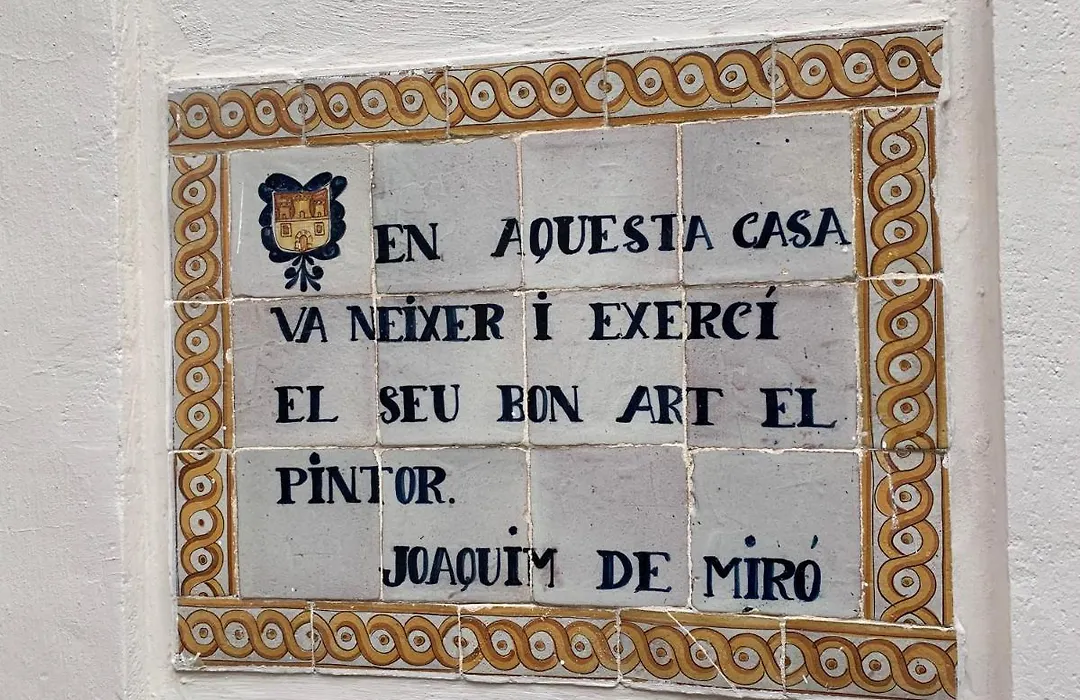 EN AQUESTA CASA
VA NEIXER I EXERCÍ
EL SEU BON ART EL
PINTOR.
JOAQUIM DE MIRÓ